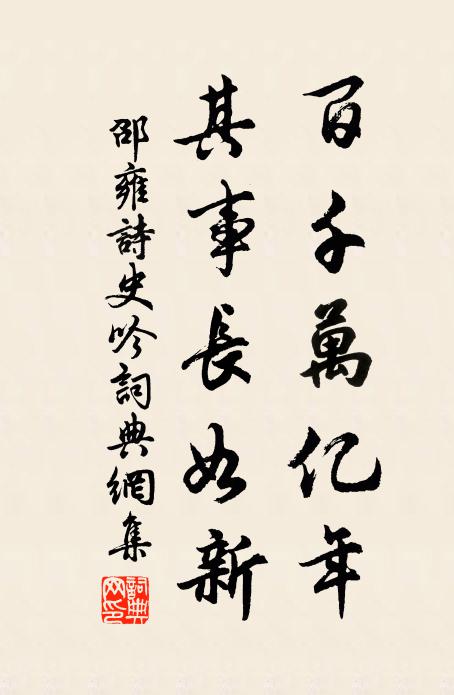 百千萬亿年
其事長如新
邵雍詩史吟詞典網集
詞典網印